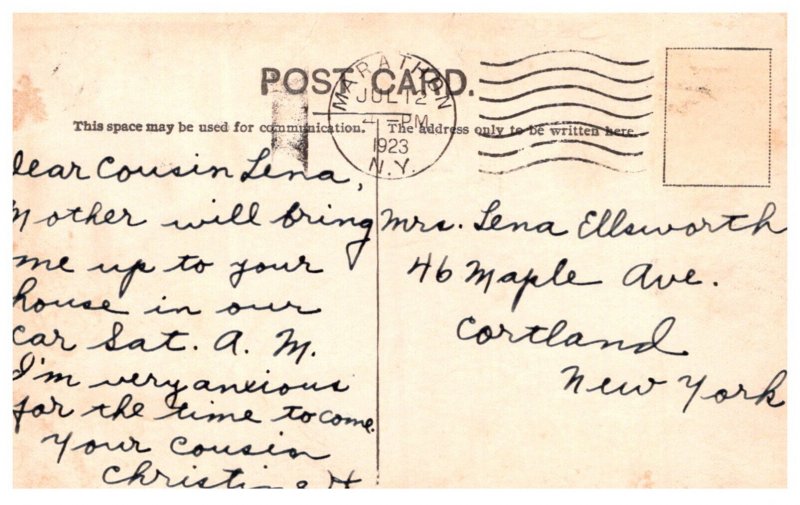 POST CARD.
MARATHON
JUL 12
4 - PM
1923
N.Y.
This space may be used for communication.
The address only to be written here.
Dear Cousin Lena,
Mother will bring
me up to your
house in our
car Sat. A. M.
I'm very anxious
for the time to come.
Your Cousin
Christine H
Mrs. Lena Ellsworth
46 Maple Ave.
Cortland
New York